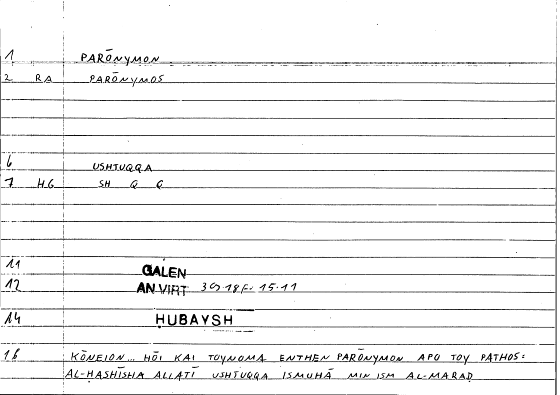 1 PARŌNYMON
2 RA PARŌNYMOS
6 USHTUQQA
7 HG SH Q Q
11 GALEN
12 AN.VIRT
14 ḤUBAYSH
16 KŌNEION... HŌI KAI TOYNOMA ENTHEN PARŌNYMON APO TOY PATHOS:
AL-ḤASHĪSHA ALLATĪ USHTUQQA ISMUHĀ MIN ISM AL-MARAḌ